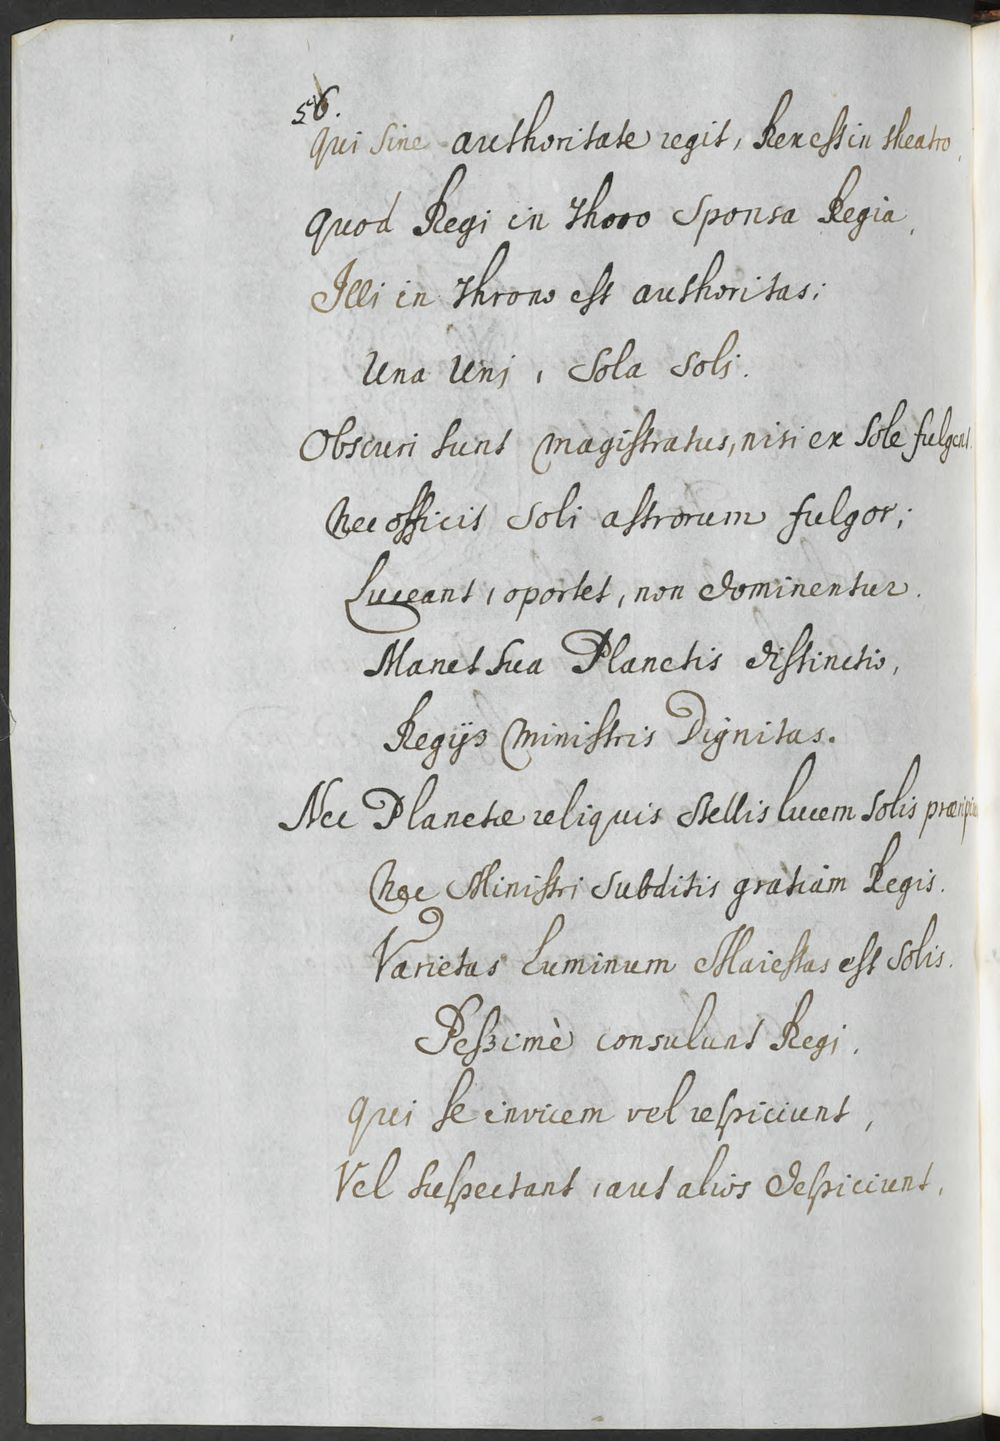 56.
Qui sine authoritate regit, Rex est in theatro,
Quod Regi in Thoro Sponsa Regia,
Illi in Throno est authoritas;
Una Uni, Sola Soli.
Obscuri sunt magistratus, nisi ex Sole fulgent.
Nec officit Soli astrorum fulgor;
Luceant, oportet, non dominentur.
Manet sua Planetis distinctio,
Regijs Ministris Dignitas.
Nec Planetæ reliquis Stellis lucem Solis
Nec Ministri Subditis gratiam Regis.
Varietas Luminum Maiestas est Solis.
Pessimè consulunt Regi,
qui se invicem vel respiciunt,
Vel suspectant, aut alios despiciunt.